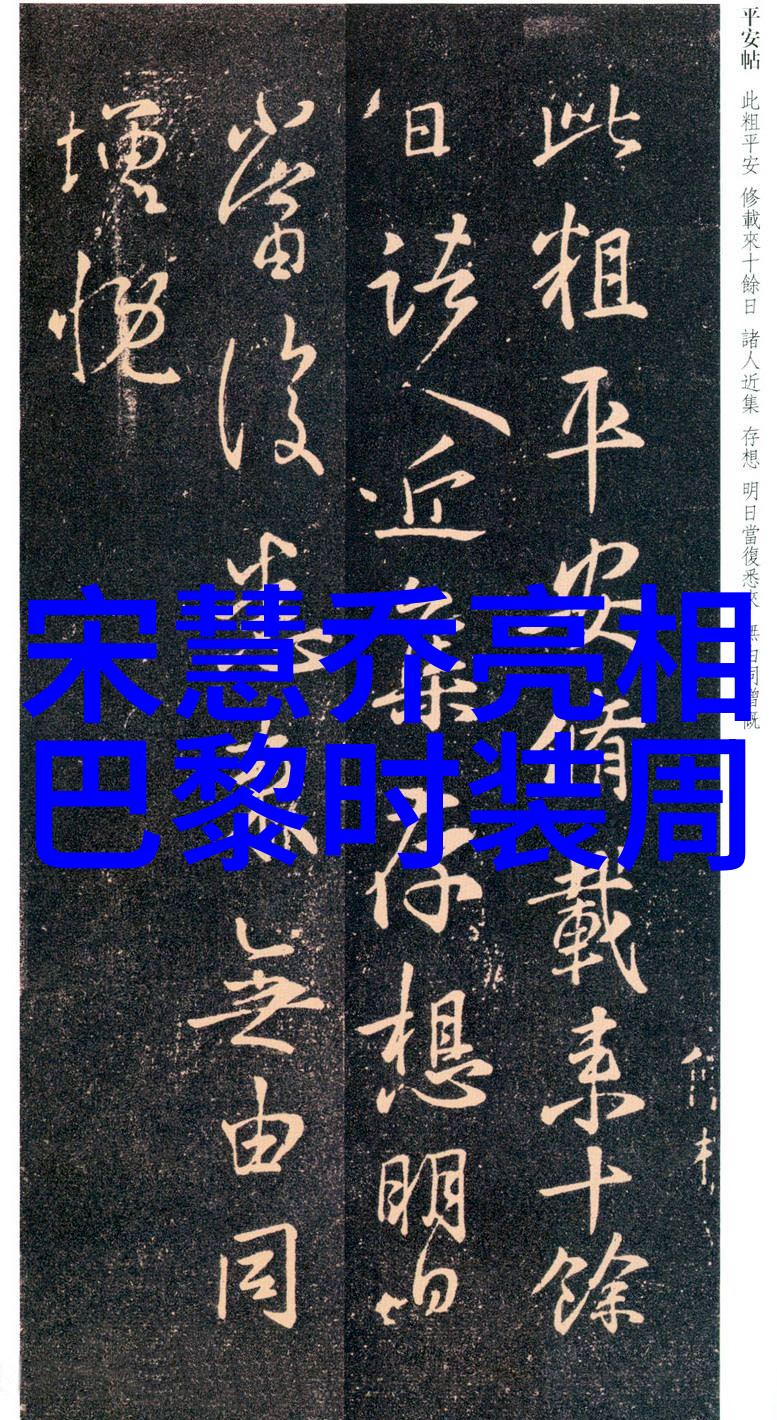 平安帖 此粗平安 修載來十餘日 諸人近集 存想 明日當復悉來 無由同增慨
此粗平安脩載來十餘
日諸人近集存想明日
當復悉來無由同
增慨
宋慧乔亮相
巴黎时装周